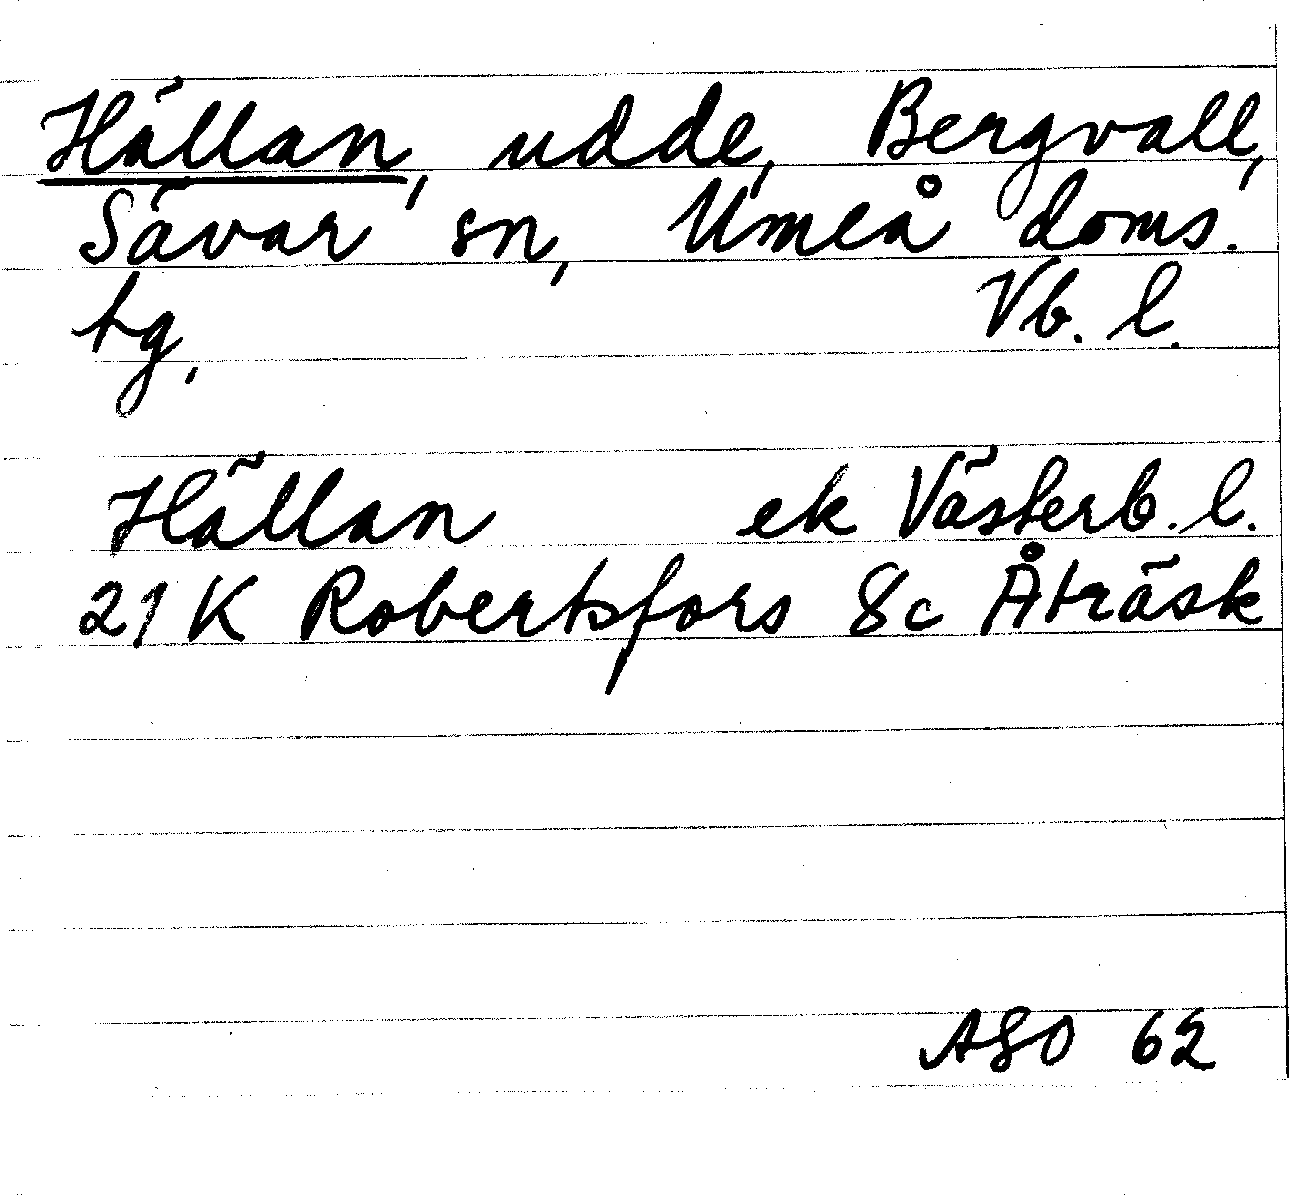 Hällan, udde, Bergvall,
Sävar sn, Umeå doms.
tg, Vb. l.
Hällan ek Västerb. l.
21 K Robertsfors 8c Åträsk
ASO 62